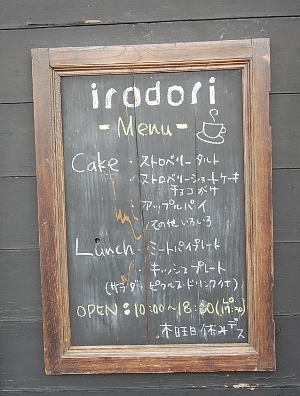 irodori
- Menu -
Cake・ストロベリータルト
・ストロベリーショートケーキ
チョコがけ
・アップルパイ
・その他いろいろ
Lunch・ミートパイプレート
・キッシュプレート
(サラダ・ピクルス・ドリンク付)
OPEN:10:00~18:30
木曜日休みデス